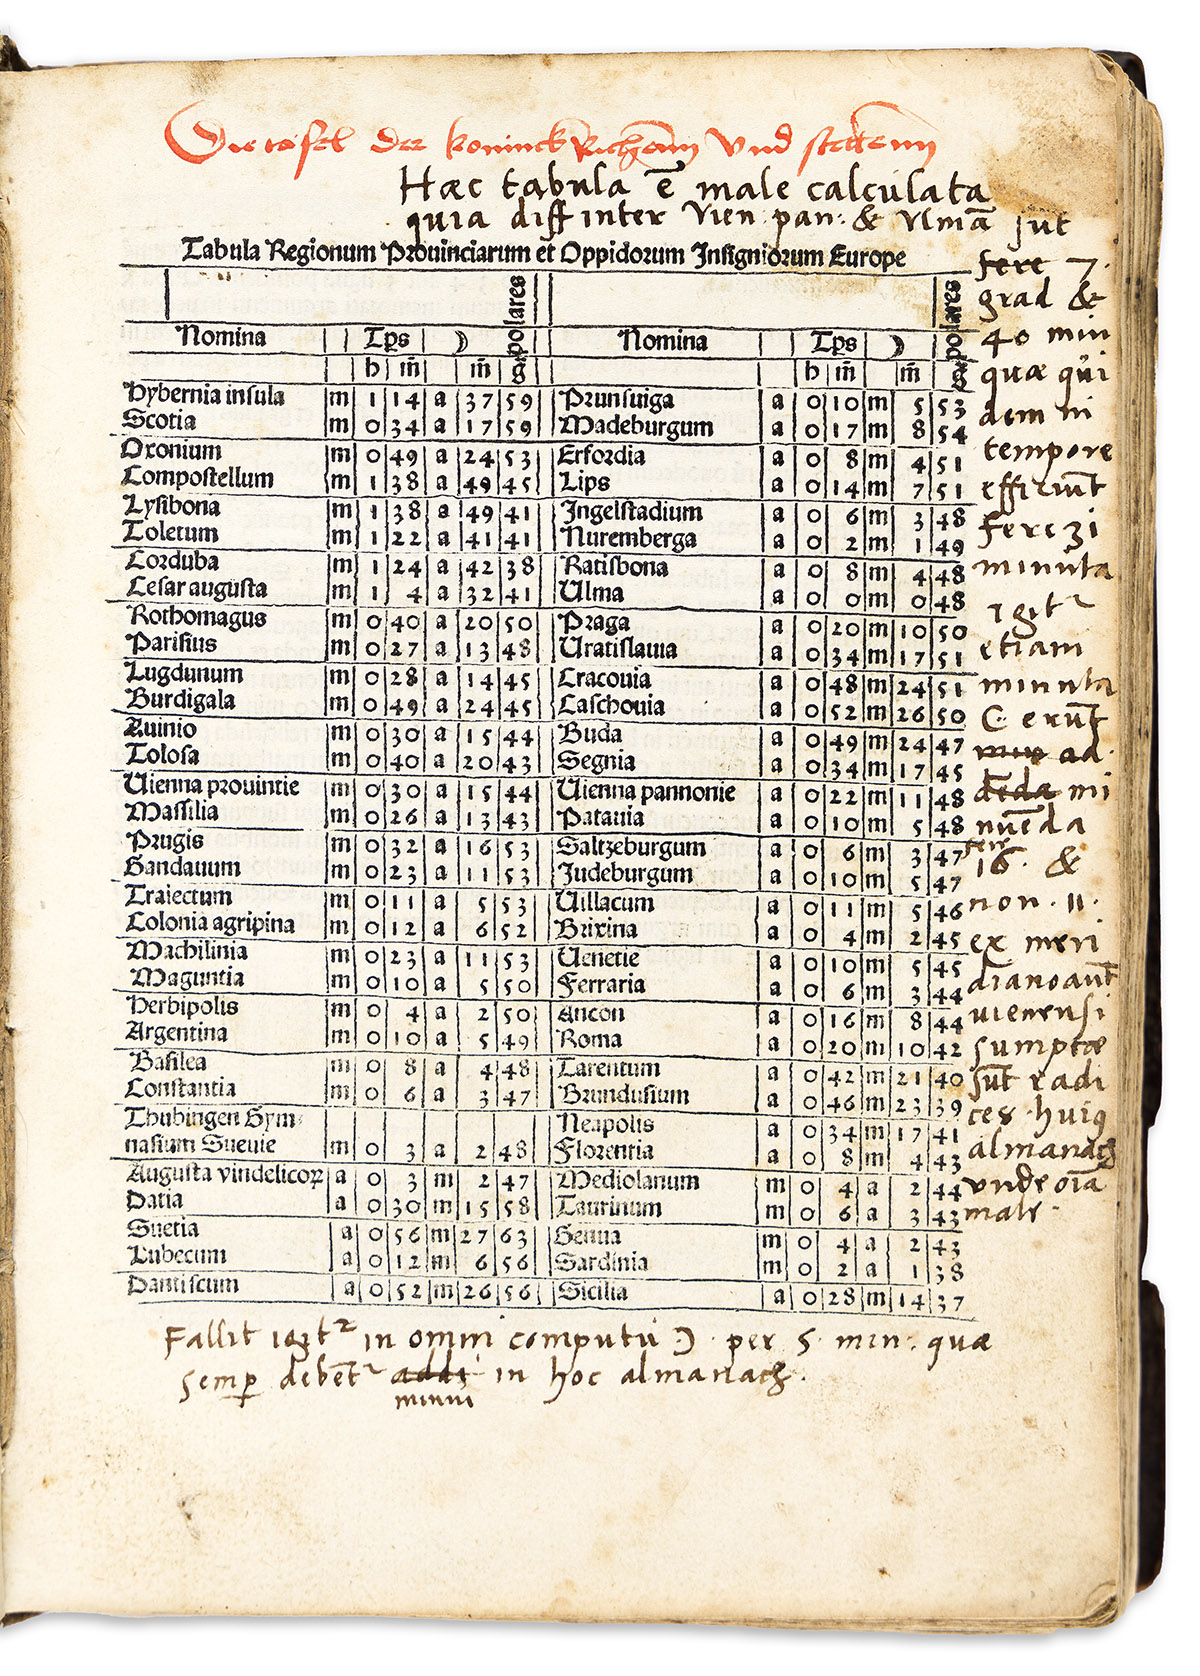 Die tafel der koninckRichenn Und stettenn
Haec tabula ē male calculata
quia diff inter Vien: pan: & Vlmā sūt
Tabula Regionum Prouinciarum et Oppidorum Insigniorum Europe
gr polares gr polares
Nomina Tp̄s ☽ Nomina Tp̄s ☽
h m̄ m̄ h m̄ m̄
Hybernia insula m 1 14 a 37 59 Prunsuiga a 0 10 m 5 53
Scotia m 0 34 a 17 59 Madeburgum a 0 17 m 8 54
Oxonium m 0 49 a 24 53 Erfordia a 0 8 m 4 51
Compostellum m 1 38 a 49 45 Lips a 0 14 m 7 51
Lysibona m 1 38 a 49 41 Ingelstadium a 0 6 m 3 48
Toletum m 1 22 a 41 41 Nuremberga a 0 2 m 1 49
Corduba m 1 24 a 42 38 Ratisbona a 0 8 m 4 48
Cesar augusta m 1 4 a 32 41 Ulma a 0 0 m 0 48
Rothomagus m 0 40 a 20 50 Praga a 0 20 m 10 50
Parisius m 0 27 a 13 48 Uratislauia a 0 34 m 17 51
Lugdunum m 0 28 a 14 45 Cracouia a 0 48 m 24 51
Burdigala m 0 49 a 24 45 Caschouia a 0 52 m 26 50
Auinio m 0 30 a 15 44 Buda a 0 49 m 24 47
Tolosa m 0 40 a 20 43 Segnia a 0 34 m 17 45
Uienna prouintie m 0 30 a 15 44 Uienna pannonie a 0 22 m 11 48
Massilia m 0 26 a 13 43 Patauia a 0 10 m 5 48
Prugis m 0 32 a 16 53 Saltzeburgum a 0 6 m 3 47
Gandauum m 0 23 a 11 53 Judeburgum a 0 10 m 5 47
Traiectum m 0 11 a 5 53 Uillacum a 0 11 m 5 46
Colonia agripina m 0 12 a 6 52 Brixina a 0 4 m 2 45
Machilinia m 0 23 a 11 53 Uenetie a 0 10 m 5 45
Maguntia m 0 10 a 5 50 Ferraria a 0 6 m 3 44
Herbipolis m 0 4 a 2 50 Ancon a 0 16 m 8 44
Argentina m 0 10 a 5 49 Roma a 0 20 m 10 42
Basilea m 0 8 a 4 48 Tarentum a 0 42 m 21 40
Constantia m 0 6 a 3 47 Brundusium a 0 46 m 23 39
Thubingen Gym- Neapolis a 0 34 m 17 41
nasium Sueuie m 0 3 a 2 48 Florentia a 0 8 m 4 43
Augusta vindelicoꝝ a 0 3 m 2 47 Mediolanum m 0 4 a 2 44
Datia a 0 30 m 15 58 Taurinum m 0 6 a 3 43
Suetia a 0 56 m 27 63 Genua m 0 4 a 2 43
Lubecum a 0 12 m 6 56 Sardinia m 0 2 a 1 38
Dantiscum a 0 52 m 26 56 Sicilia a 0 28 m 14 37
fere 7.
grad &
40 min
quae qui
dem in
tempore
efficiūt
fere 31
minuta
igitr
etiam
minuta
☾ erūt
min ad
dēda mi
nuēda
fere
16 &
non 11.
ex meri
diano aūt
vienensi
sumptae
sūt radi
ces huiꝰ
almanach
vnde oīa
male.
Fallit igitr in omni computu ☽ per 5 min: quae
semꝑ debētr addi in hoc almanach.
minui